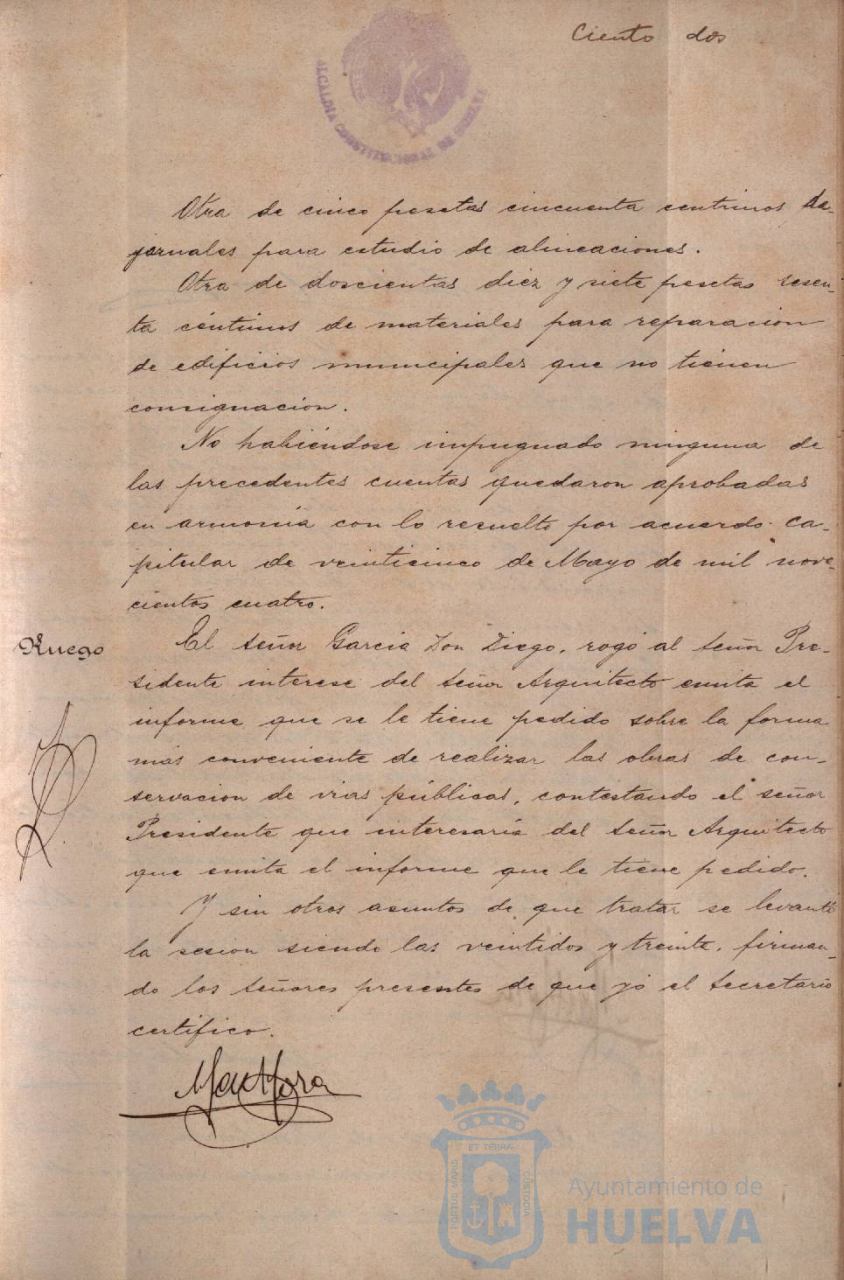 Ciento dos
ALCALDIA CONSTITUCIONAL DE HUELVA
Otra de cinco pesetas cincuenta centimos de
jornales para estudio de alineaciones.
Otra de doscientas diez y siete pesetas sesen-
ta céntimos de materiales para reparacion
de edificios municipales que no tienen
consignacion.
No habiéndose impugnado ninguna de
las precedentes cuentas quedaron aprobadas
en armonía con lo resuelto por acuerdo ca-
pitular de veinticinco de Mayo de mil nove-
cientos cuatro.
Ruego
El señor Garcia Don Diego, rogó al señor Pre-
sidente interese del señor Arquitecto emita el
informe que se le tiene pedido sobre la forma
más conveniente de realizar las obras de con-
servacion de vias públicas, contestando el señor
Presidente que interesaría del señor Arquitecto
que emita el informe que le tiene pedido.
Y sin otros asuntos de que tratar se levantó
la sesion siendo las veintidos y treinta, firman-
do los señores presentes de que yó el Secretario
certifico.
Mora
PORTUS MARIS ET TERRA CUSTODIA
Ayuntamiento de
HUELVA